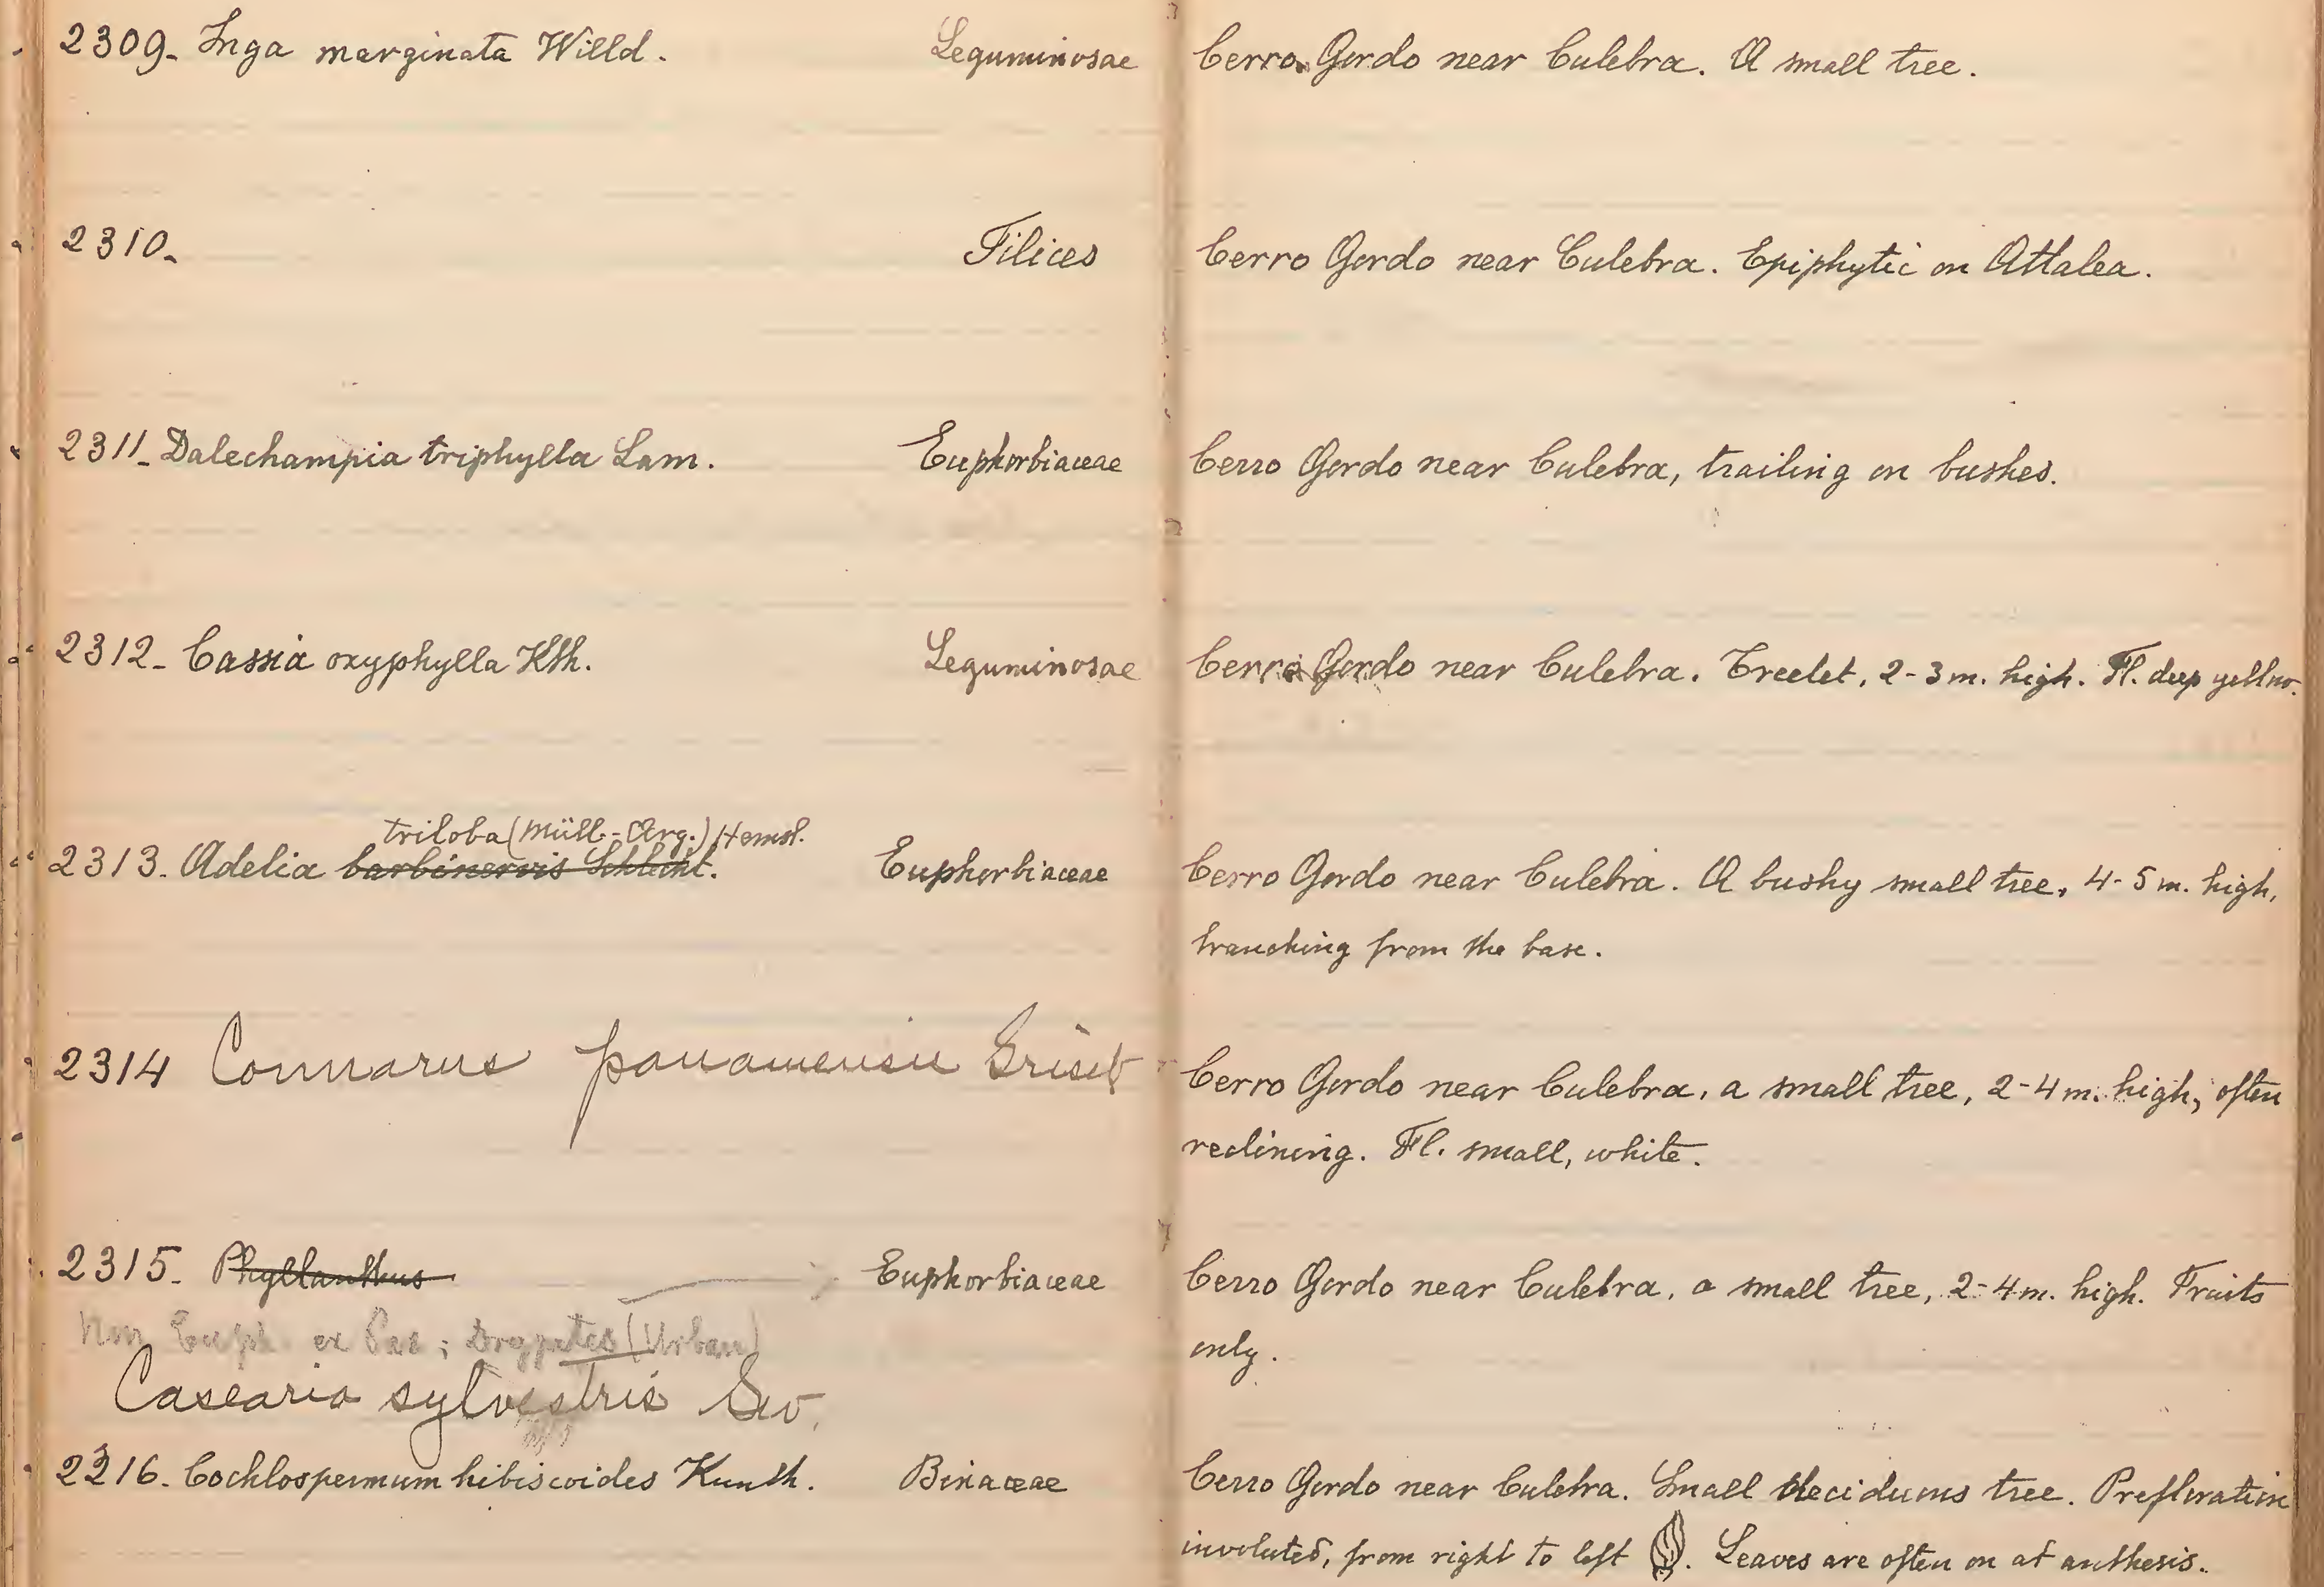 2309- Inga marginata Willd. Leguminosae Cerro Gordo near Culebra. A small tree.
2310- Filices Cerro Gordo near Culebra. Epiphytic on Attalea.
2311- Dalechampia triphylla Lam. Euphorbiaceae Cerro Gordo near Culebra, trailing on bushes.
2312- Cassia oxyphylla Kth. Leguminosae Cerro Gordo near Culebra. Treelet, 2-3 m. high. Fl. deep yellow.
triloba (Müll-Arg.) Hemsl.
2313. Adelia barbinervis Schlecht. Euphorbiaceae Cerro Gordo near Culebra. A bushy small tree, 4-5 m. high,
branching from the base.
2314 Connarus panamensis Griseb Cerro Gordo near Culebra, a small tree, 2-4 m. high, often
reclining. Fl. small, white.
2315. Phyllanthus Euphorbiaceae Cerro Gordo near Culebra, a small tree, 2-4 m. high. Fruits
only.
Non Euph. ex Pax; Drypetes (Urban)
Casearia sylvestris Sw.
2316. Cochlospermum hibiscoides Kunth. Bixaceae Cerro Gordo near Culebra. Small deciduous tree. Prefloration
involuted, from right to left. Leaves are often on at anthesis.